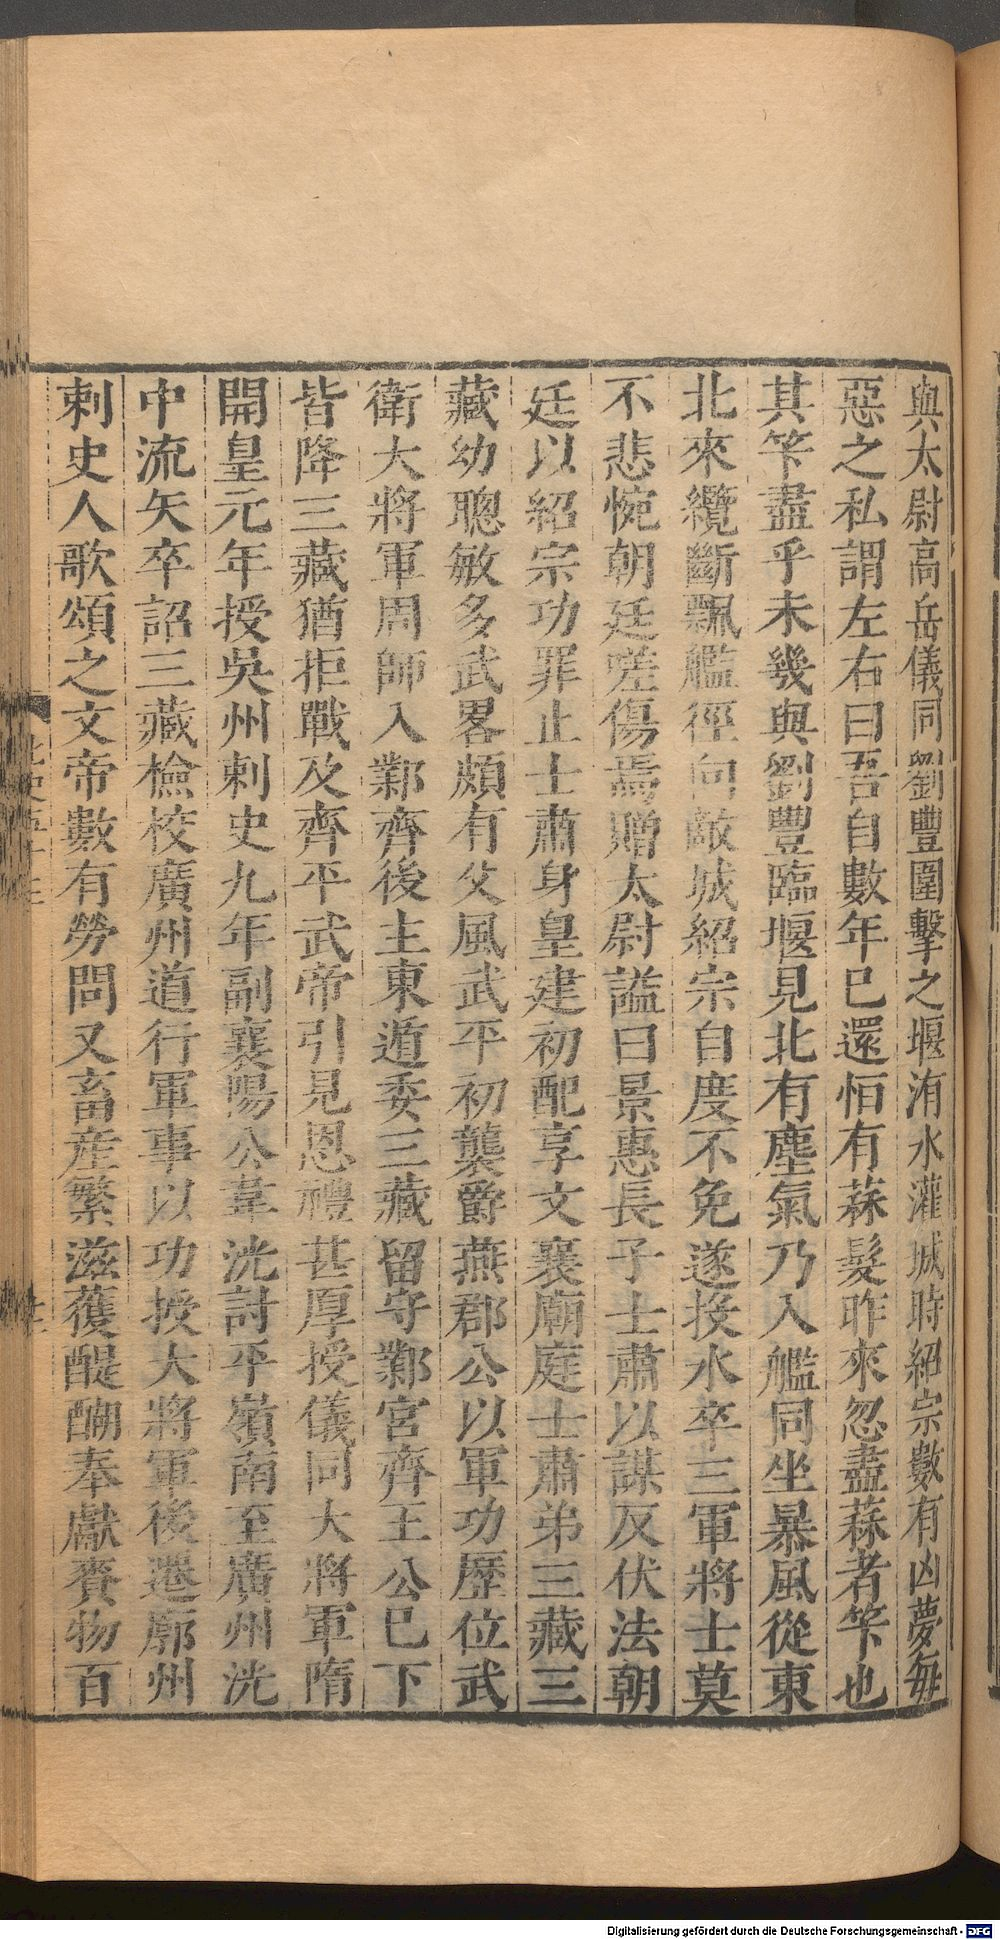 與太尉高岳儀同劉豐圍擊之堰洧水灌城時紹宗數有凶夢每
惡之私謂左右曰吾自數年已還恒有蒜髮昨來忽盡蒜者筭也
其筭盡乎未幾與劉豐臨堰見北有塵氣乃入艦同坐暴風從東
北來纜斷飄艦徑向敵城紹宗自度不免遂投水卒三軍將士莫
不悲惋朝廷嗟傷焉贈太尉諡曰景惠長子士肅以謀反伏法朝
廷以紹宗功罪止士肅身皇建初配享文襄廟庭士肅弟三藏三
藏幼聰敏多武畧頗有父風武平初襲爵燕郡公以軍功歷位武
衛大將軍周師入鄴齊後主東遁委三藏留守鄴宮齊王公已下
皆降三藏猶拒戰及齊平武帝引見恩禮甚厚授儀同大將軍隋
開皇元年授吳州刺史九年副襄陽公韋洸討平嶺南至廣州洸
中流矢卒詔三藏檢校廣州道行軍事以功授大將軍後遷廓州
刺史人歌頌之文帝數有勞問又畜産繁滋獲醍醐奉獻賚物百
Digitalisierung gefördert durch die Deutsche Forschungsgemeinschaft - DFG